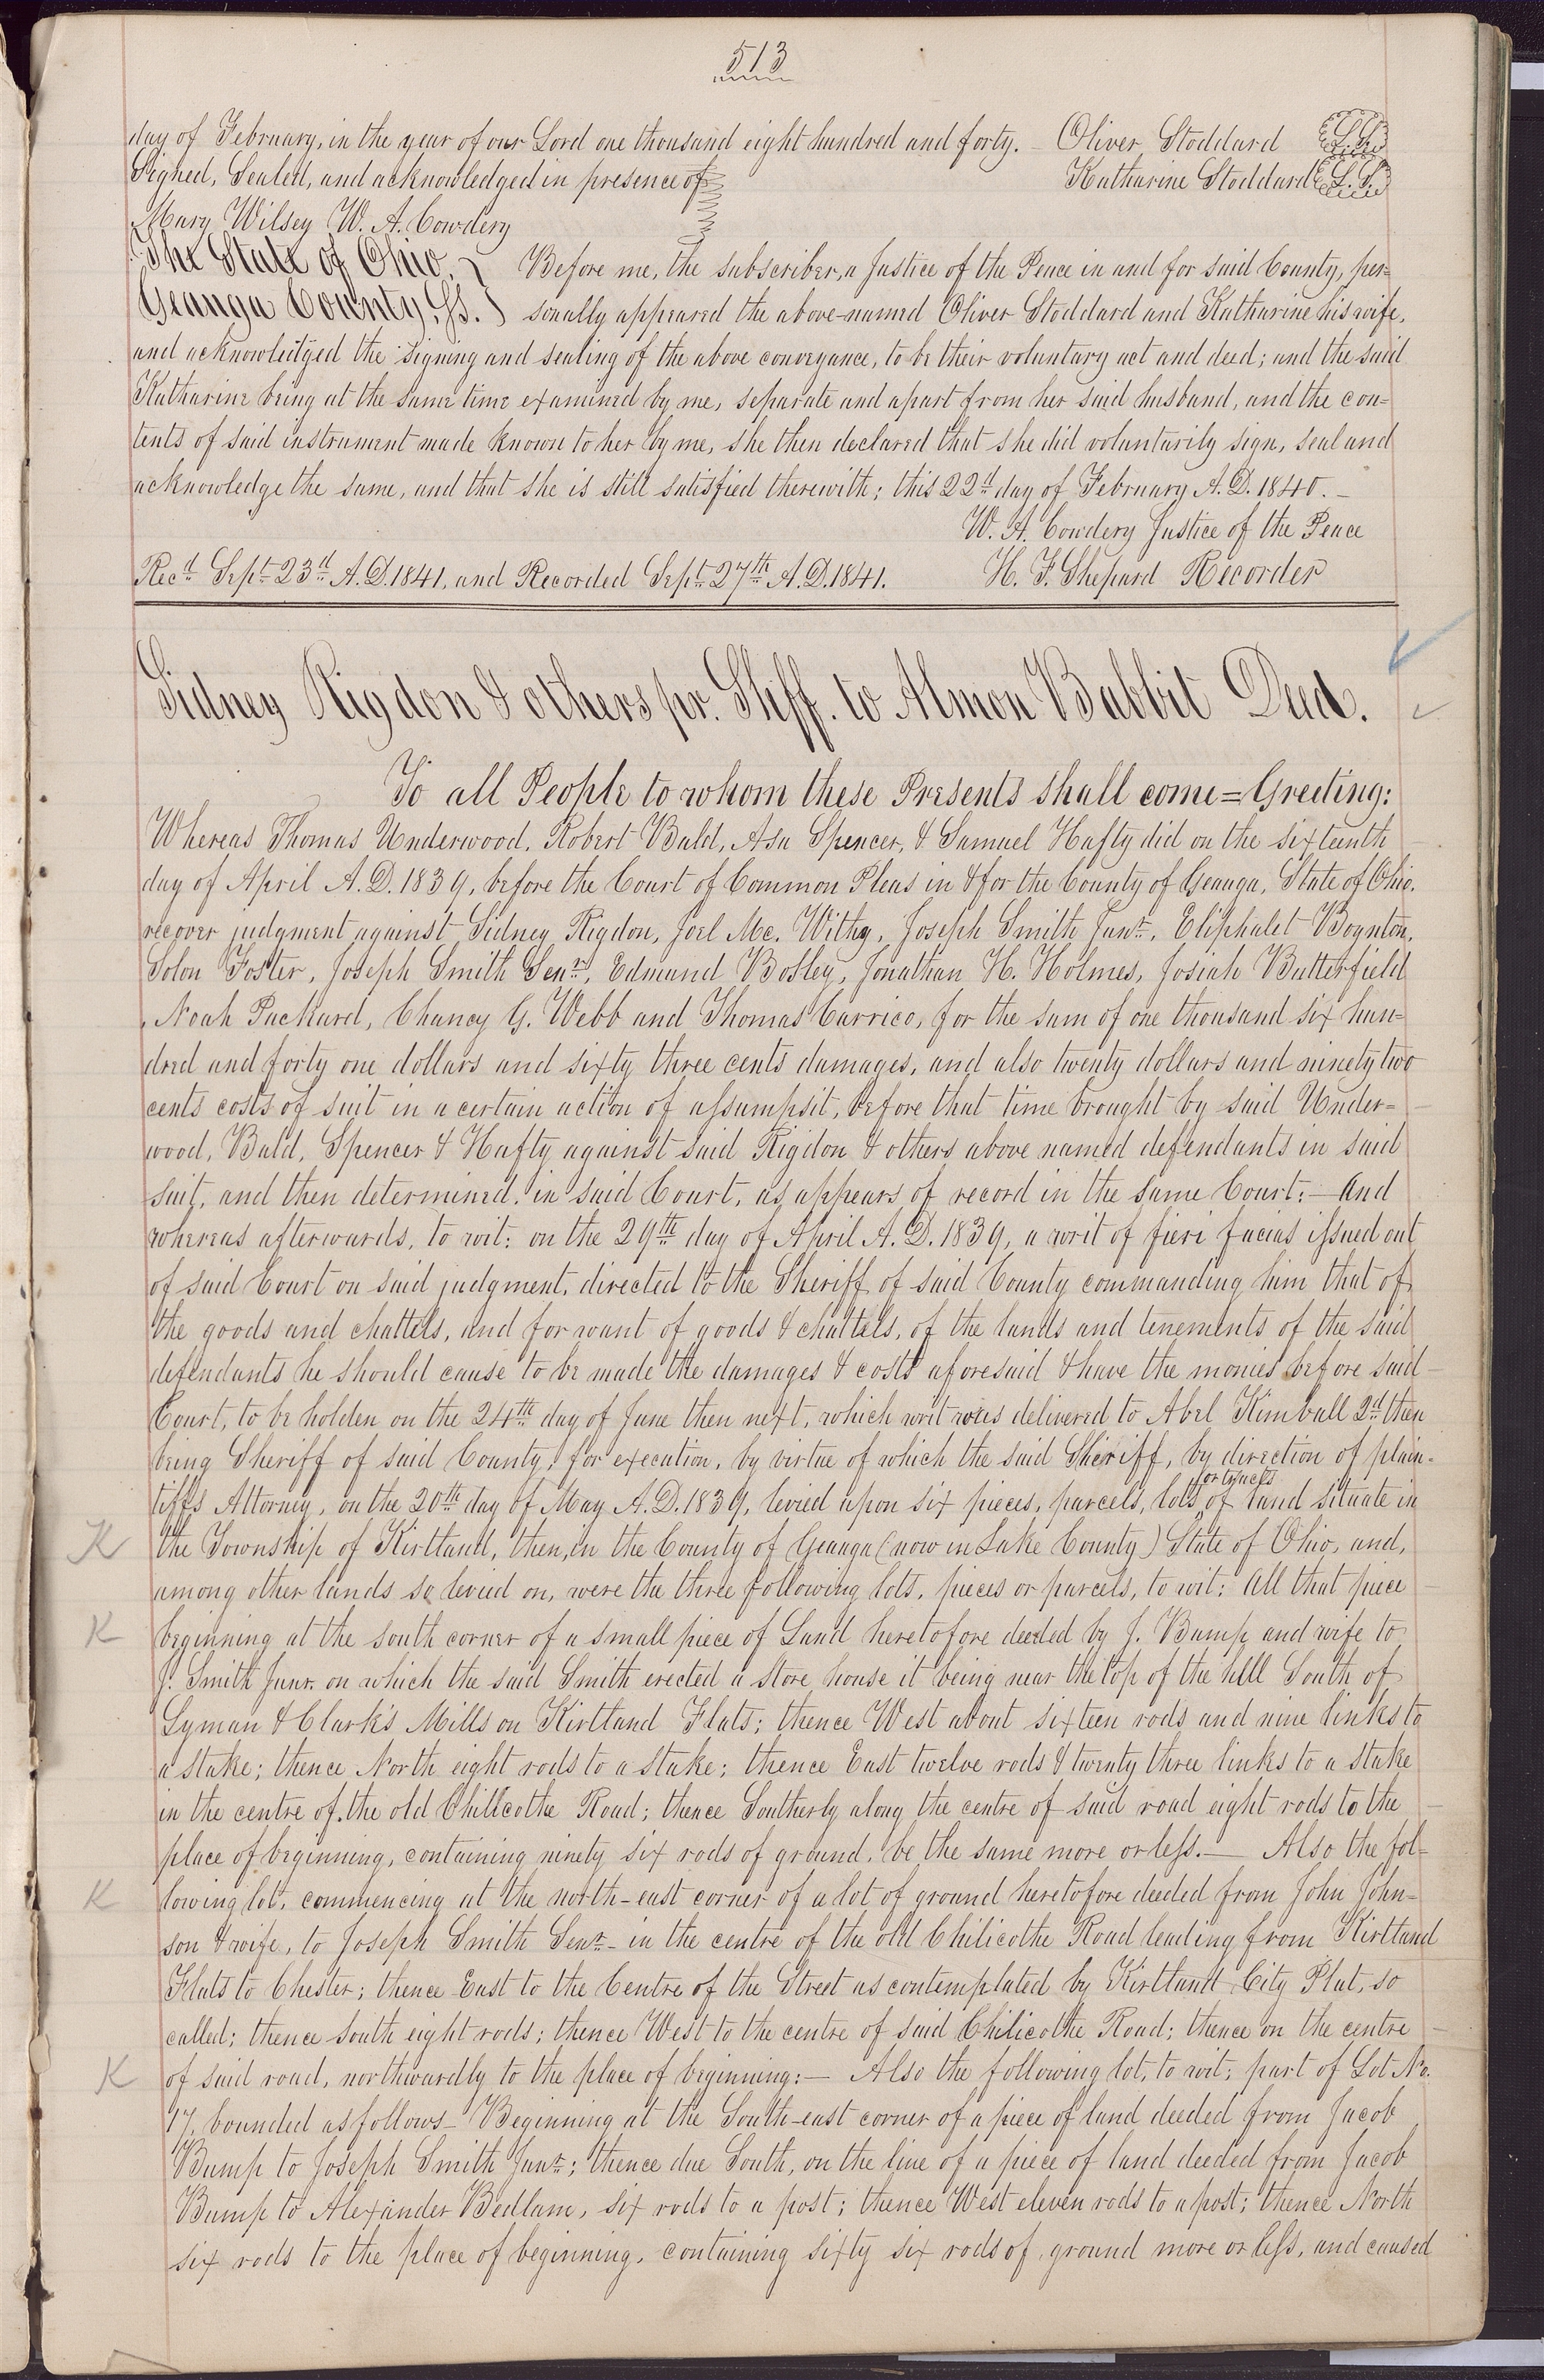 513
day of February, in the year of our Lord one thousand eight hundred and forty. – Oliver Stoddard L.S.
Signed, Sealed, and acknowledged in presence of Katharine Stoddard L.S.
Mary Wilsey W. A. Cowdery
The State of Ohio, } Before me, the subscriber, a Justice of the Peace in and for said County, per=
Geauga County, Ss. } sonally appeared the above-named Oliver Stoddard and Katharine his wife,
and acknowledged the signing and sealing of the above conveyance, to be their voluntary act and deed; and the said
Katharine being at the same time examined by me, separate and apart from her said husband, and the con=
tents of said instrument made known to her by me, she then declared that she did voluntarily sign, seal and
acknowledge the same, and that she is still satisfied therewith; this 22d day of February A.D. 1840. –
W. A. Cowdery Justice of the Peace
Recd Sept 23d A.D. 1841, and Recorded Sept 27th A.D. 1841. H. F. Shepard Recorder
Sidney Rigdon & others pr. Shff. to Almon Babbit Deed.
To all People to whom these Presents shall come = Greeting:
Whereas Thomas Underwood, Robert Bald, Asa Spencer, & Samuel Hafty did on the sixteenth
day of April A.D. 1839, before the Court of Common Pleas in & for the County of Geauga, State of Ohio.
recover judgment against Sidney Rigdon, Joel Mc. Withy, Joseph Smith Junr., Eliphalet Boynton,
Solon Foster, Joseph Smith Senr., Edmund Bosley, Jonathan H. Holmes, Josiah Butterfield
, Noah Packard, Chancy G. Webb and Thomas Carrico, for the sum of one thousand six hun=
dred and forty one dollars and sixty three cents damages, and also twenty dollars and ninety two
cents costs of suit in a certain action of assumpsit, before that time brought by said Under=
wood, Bald, Spencer & Hafty against said Rigdon & others above named defendants in said
suit, and then determined, in said Court, as appears of record in the same Court: – And
whereas afterwards, to wit: on the 29th day of April A.D. 1839, a writ of fieri facias issued out
of said Court on said judgment, directed to the Sheriff of said County commanding him that of
the goods and chattels, and for want of goods & chattels, of the lands and tenements of the said
defendants he should cause to be made the damages & costs aforesaid & have the monies before said
Court, to be holden on the 24th day of June then next, which writ was delivered to Abel Kimball 2d then
being Sheriff of said County, for execution, by virtue of which the said Sheriff, by direction of plain=
or tracts
tiffs Attorney, on the 20th day of May A.D. 1839, levied upon six pieces, parcels, lots of land situate in
K the Township of Kirtland, then, in the County of Geauga (now in Lake County) State of Ohio, and,
among other lands so levied on, were the three following lots, pieces or parcels, to wit: All that piece
K beginning at the south corner of a small piece of Land heretofore deeded by J. Bump and wife to
J. Smith Junr. on which the said Smith erected a store house it being near the top of the hill South of
Lyman & Clark's Mills on Kirtland Flats; thence West about sixteen rods and nine links to
a stake; thence North eight rods to a stake; thence East twelve rods & twenty three links to a stake
in the centre of the old Chillcothe Road; thence Southerly along the centre of said road eight rods to the
place of beginning, containing ninety six rods of ground, be the same more or less. – Also the fol=
K lowing lot, commencing at the north-east corner of a lot of ground heretofore deeded from John John=
son & wife, to Joseph Smith Senr. – in the centre of the old Chilicothe Road leading from Kirtland
Flats to Chester; thence East to the Centre of the Street as contemplated by Kirtland City Plat, so
called; thence South eight rods; thence West to the centre of said Chilicothe Road; thence on the centre
K of said road, northwardly to the place of beginning: – Also the following lot, to wit; part of Lot No.
17, bounded as follows – Beginning at the South-east corner of a piece of land deeded from Jacob
Bump to Joseph Smith Junr.; thence due South, on the line of a piece of land deeded from Jacob
Bump to Alexander Bedlam, six rods to a post; thence West eleven rods to a post; thence North
six rods to the place of beginning, containing sixty six rods of ground more or less, and caused